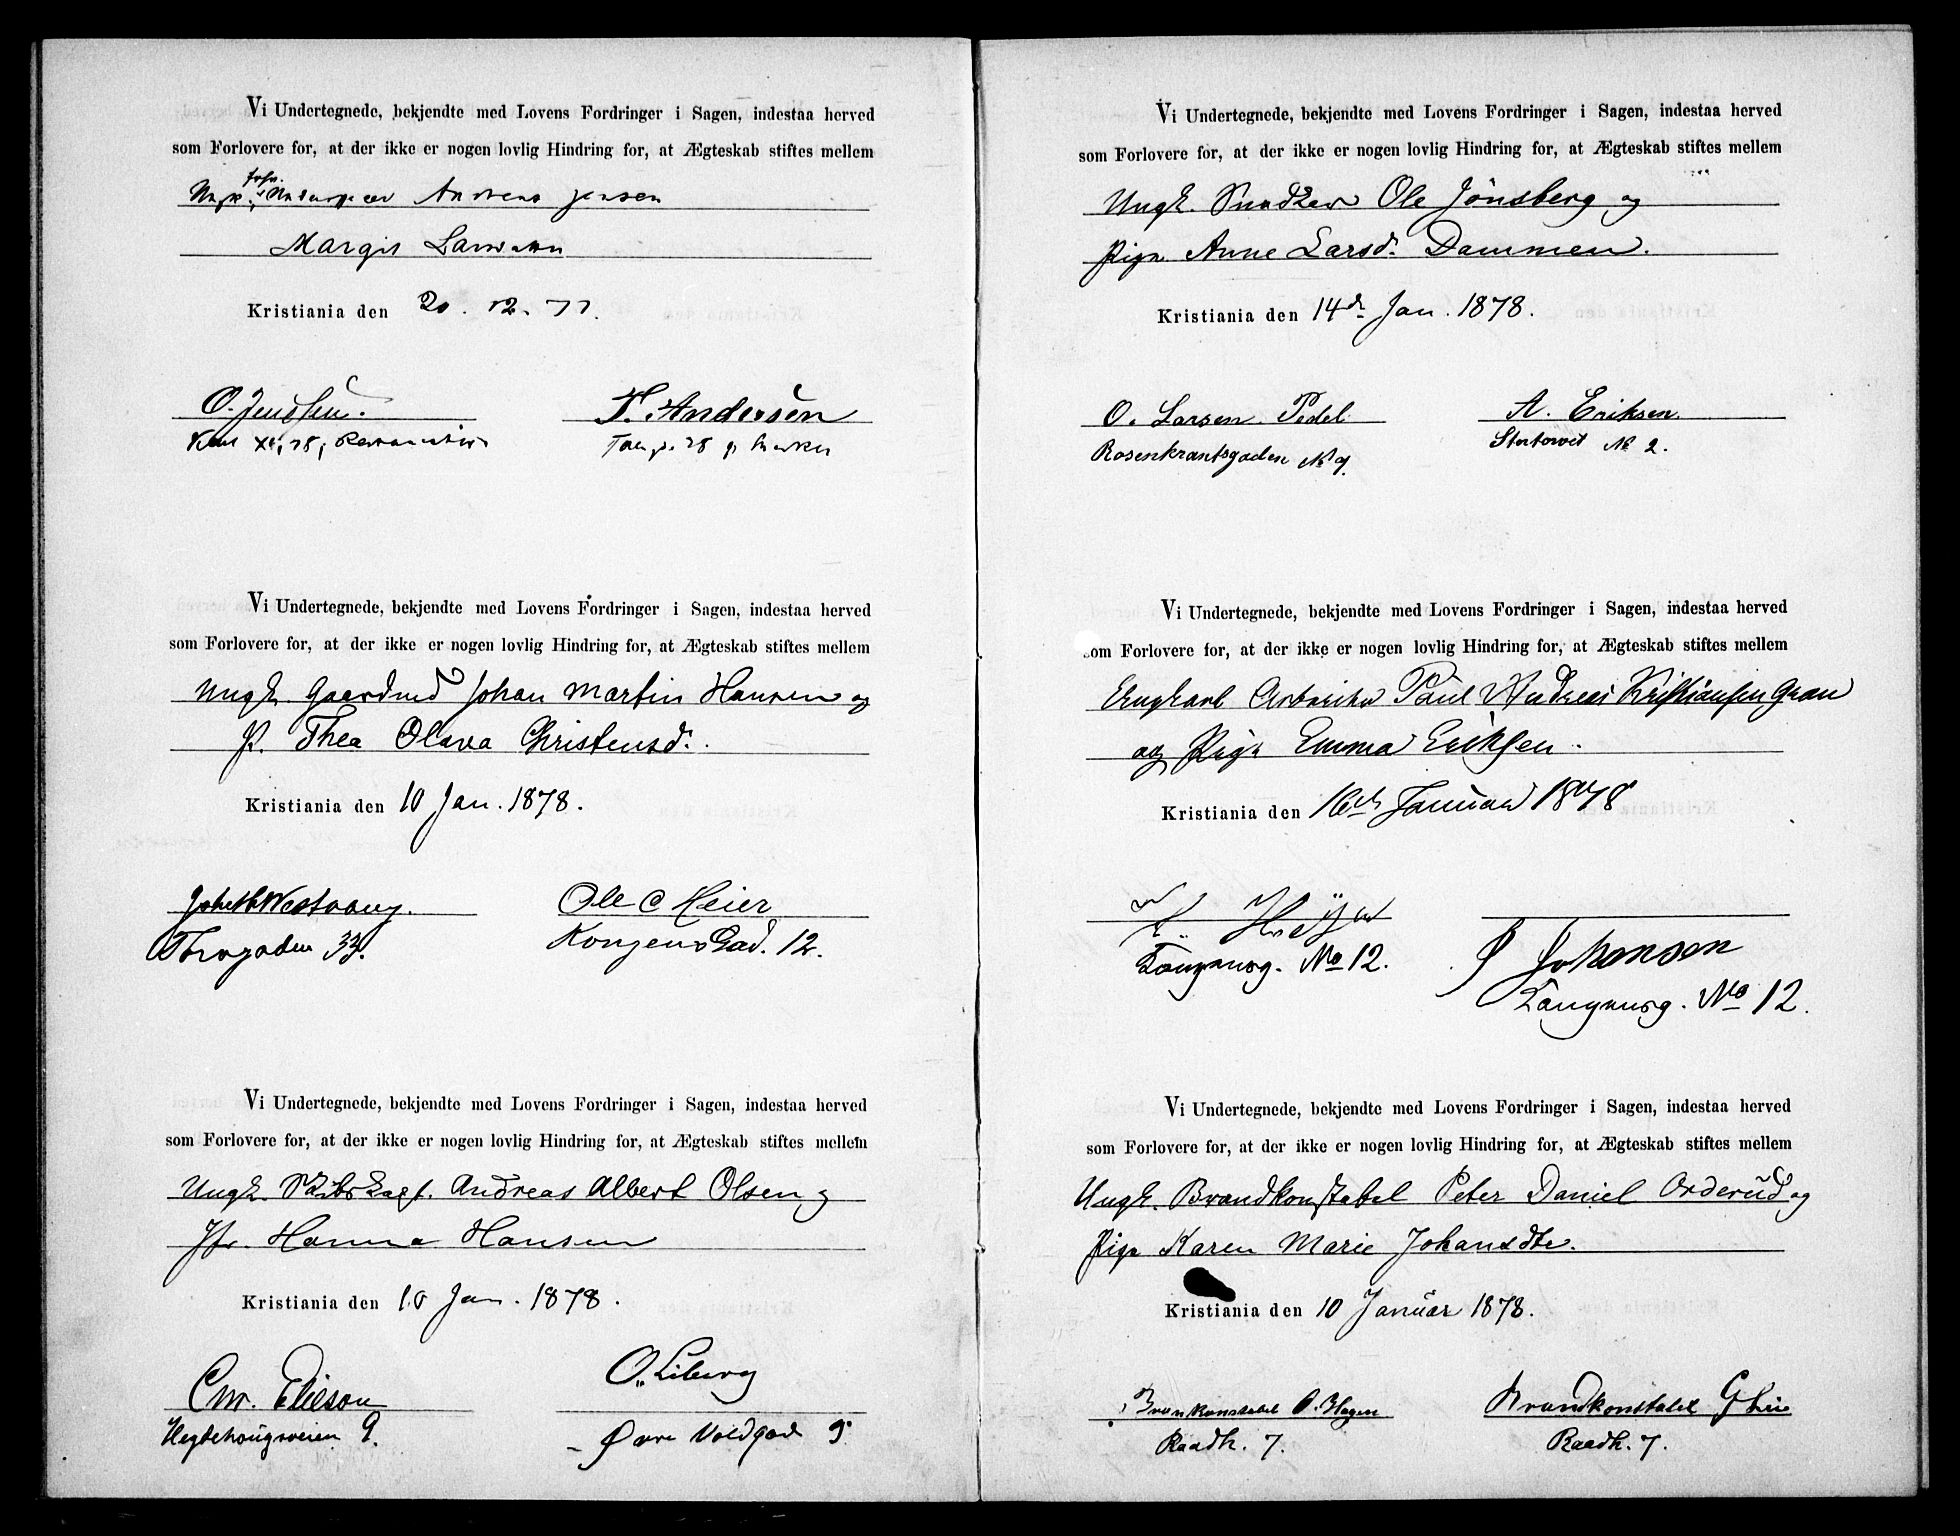 Vi Undertegnede, bekjendte med Lovens Fordringer i Sagen, indestaa herved
som Forlovere for, at der ikke er nogen lovlig Hindring for, at Ægteskab stiftes mellem
Andreas Jensen
Margit
Kristiania den 20. 12. 77.
O. Jenssen. T. Andersen
Vi Undertegnede, bekjendte med Lovens Fordringer i Sagen, indestaa herved
som Forlovere for, at der ikke er nogen lovlig Hindring for, at Ægteskab stiftes mellem
Ungk. Gaardmd Johan Martin Hansen og
P. Thea Olava Christensd.
Kristiania den 10 Jan. 1878.
Westvang. Ole C Heier
Throgaden 33. Kongens Gad. 12.
Vi Undertegnede, bekjendte med Lovens Fordringer i Sagen, indestaa herved
som Forlovere for, at der ikke er nogen lovlig Hindring for, at Ægteskab stiftes mellem
Ungk. Skibskapt. Andreas Albert Olsen og
Jfr. Hanna Hansen
Kristiania den 10 Jan. 1878.
Chr. Elieson O. Liberg
Hegdehougsveien 9. Øvre Voldgad 9
Vi Undertegnede, bekjendte med Lovens Fordringer i Sagen, indestaa herved
som Forlovere for, at der ikke er nogen lovlig Hindring for, at Ægteskab stiftes mellem
Ungk. Snedker Ole Jönsberg og
Pige Anne Larsd. Dammen.
Kristiania den 14de Jan. 1878.
O. Larsen Pedel A. Eriksen
Rosenkrantsgaden No 9. Stortorvet No 2.
Vi Undertegnede, bekjendte med Lovens Fordringer i Sagen, indestaa herved
som Forlovere for, at der ikke er nogen lovlig Hindring for, at Ægteskab stiftes mellem
Ungkarl Arbeider Paul Andreas Kristiansen Gran
og Pige Emma Eriksen.
Kristiania den 16de Januar 1878
Johansen
No 12.
No 12.
Vi Undertegnede, bekjendte med Lovens Fordringer i Sagen, indestaa herved
som Forlovere for, at der ikke er nogen lovlig Hindring for, at Ægteskab stiftes mellem
Ungk. Brandkonstabel Peter Daniel Orderud og
Pige Karen Marie Johansdtr.
Kristiania den 10 Januar 1878.
Brankonstabel O. Hagen Brandkonstabel G Lie
Raadh. 7. Raadh. 7.